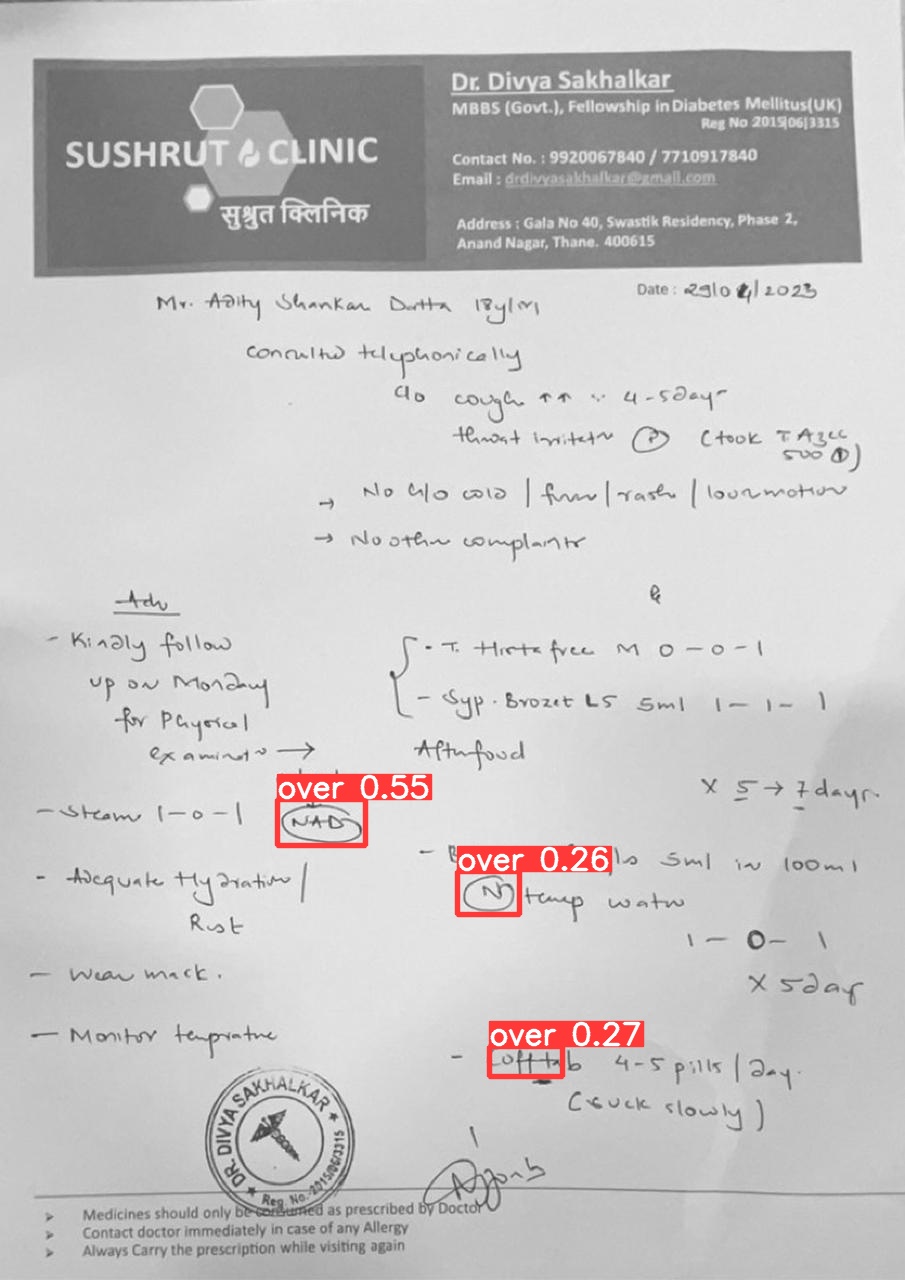 SUSHRUT CLINIC
सुश्रुत क्लिनिक
Dr. Divya Sakhalkar
MBBS (Govt.), Fellowship in Diabetes Mellitus(UK)
Reg No 2015|06|3315
Contact No. : 9920067840 / 7710917840
Email : drdivyasakhalkar@gmail.com
Address : Gala No 40, Swastik Residency, Phase 2,
Anand Nagar, Thane. 400615
Date : 29/04/2023
Mr. Adity Shankar Dutta 18y/M
consulted telephonically
c/o cough ↑↑ 4-5 days
throat irritatn (took T Azee
500 ①)
→ No c/o cold / fever / rash / loosemotion
→ No other complaints
Adv
- Kindly follow
up on Monday
for Physical
examinatn →
NAD
- Steam 1-0-1
- Adequate Hydration /
Rest
- Wear mask.
- Monitor temprature
- T. Histafree M 0-0-1
- Syp. Brozet LS 5ml 1-1-1
After food
x 5 → 7 days.
- 5ml in 100ml
N temp water
1-0-1
x 5 day
- Cofftab 4-5 pills / day.
(suck slowly)
over 0.55
over 0.26
over 0.27
DR. DIVYA SAKHALKAR
Reg. No.-2015/06/3315
➤ Medicines should only be consumed as prescribed by Doctor
➤ Contact doctor immediately in case of any Allergy
➤ Always Carry the prescription while visiting again